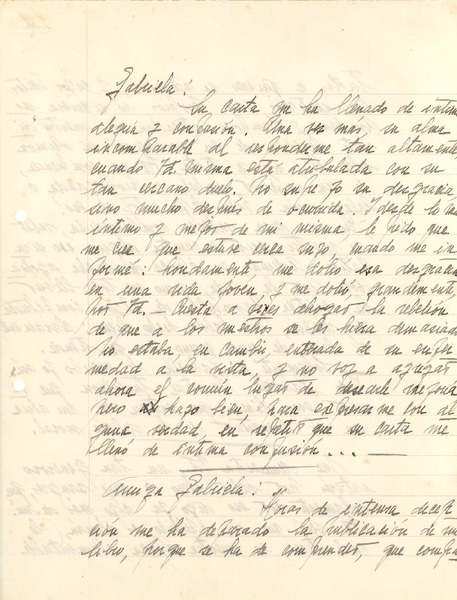 Gabriela:
Su carta me ha llenado de íntima
alegría y confusión. Una vez mas, su alma
incomparable al responderme tan altamente,
cuando Ud. misma está atribulada con su
tan cercano duelo. No supe yo su desgracia
sino mucho después de ocurrida. Y desde lo más
íntimo y mejor de mi misma, le pido que
me crea que estuve cerca suyo, cuando me in
formé: hondamente me dolió esa desgracia
en una vida joven, y me dolió, grandemente,
por Ud. — Cuesta a veces ahogar la rebelión
de que a los nuestros se les hiera demasiado.
No estaba, en cambio, enterada de su enfer
medad a la vista, y no voy a agregar
ahora el común lugar de desearle mejoría
pero hago bien, para expresarme con al
guna verdad, en repetir que su carta me
llenó de íntima confusión. . . —
Amiga Gabriela:
Horas de intensa decep
ción me ha deparado la publicación de mi
libro, porque se ha de comprender, que